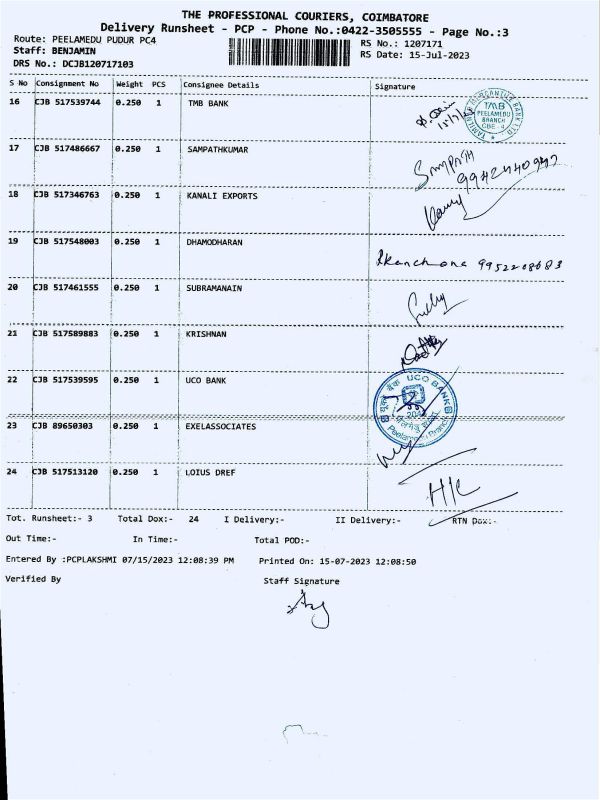 THE PROFESSIONAL COURIERS, COIMBATORE
Delivery Runsheet - PCP - Phone No.:0422-3505555 - Page No.:3
Route: PEELAMEDU PUDUR PC4
RS No.: 1207171
Staff: BENJAMIN
RS Date: 15-Jul-2023
DRS No.: DCJB120717103
S No Consignment No Weight PCS Consignee Details Signature
16 CJB 517539744 0.250 1 TMB BANK
TAMILNAD MERCANTILE BANK LTD
TMB
PEELAMEDU
BRANCH
CBE - 4
17 CJB 517486667 0.250 1 SAMPATHKUMAR
Sampath
9942440947
18 CJB 517346763 0.250 1 KANALI EXPORTS
19 CJB 517548003 0.250 1 DHAMODHARAN
9952208683
20 CJB 517461555 0.250 1 SUBRAMANAIN
21 CJB 517589883 0.250 1 KRISHNAN
22 CJB 517539595 0.250 1 UCO BANK
यूको बैंक UCO BANK
Peelamedu Branch
23 CJB 89650303 0.250 1 EXELASSOCIATES
24 CJB 517513120 0.250 1 LOIUS DREF
Tot. Runsheet:- 3 Total Dox:- 24 I Delivery:- II Delivery:- RTN Dox:-
Out Time:- In Time:- Total POD:-
Entered By :PCPLAKSHMI 07/15/2023 12:08:39 PM Printed On: 15-07-2023 12:08:50
Verified By Staff Signature